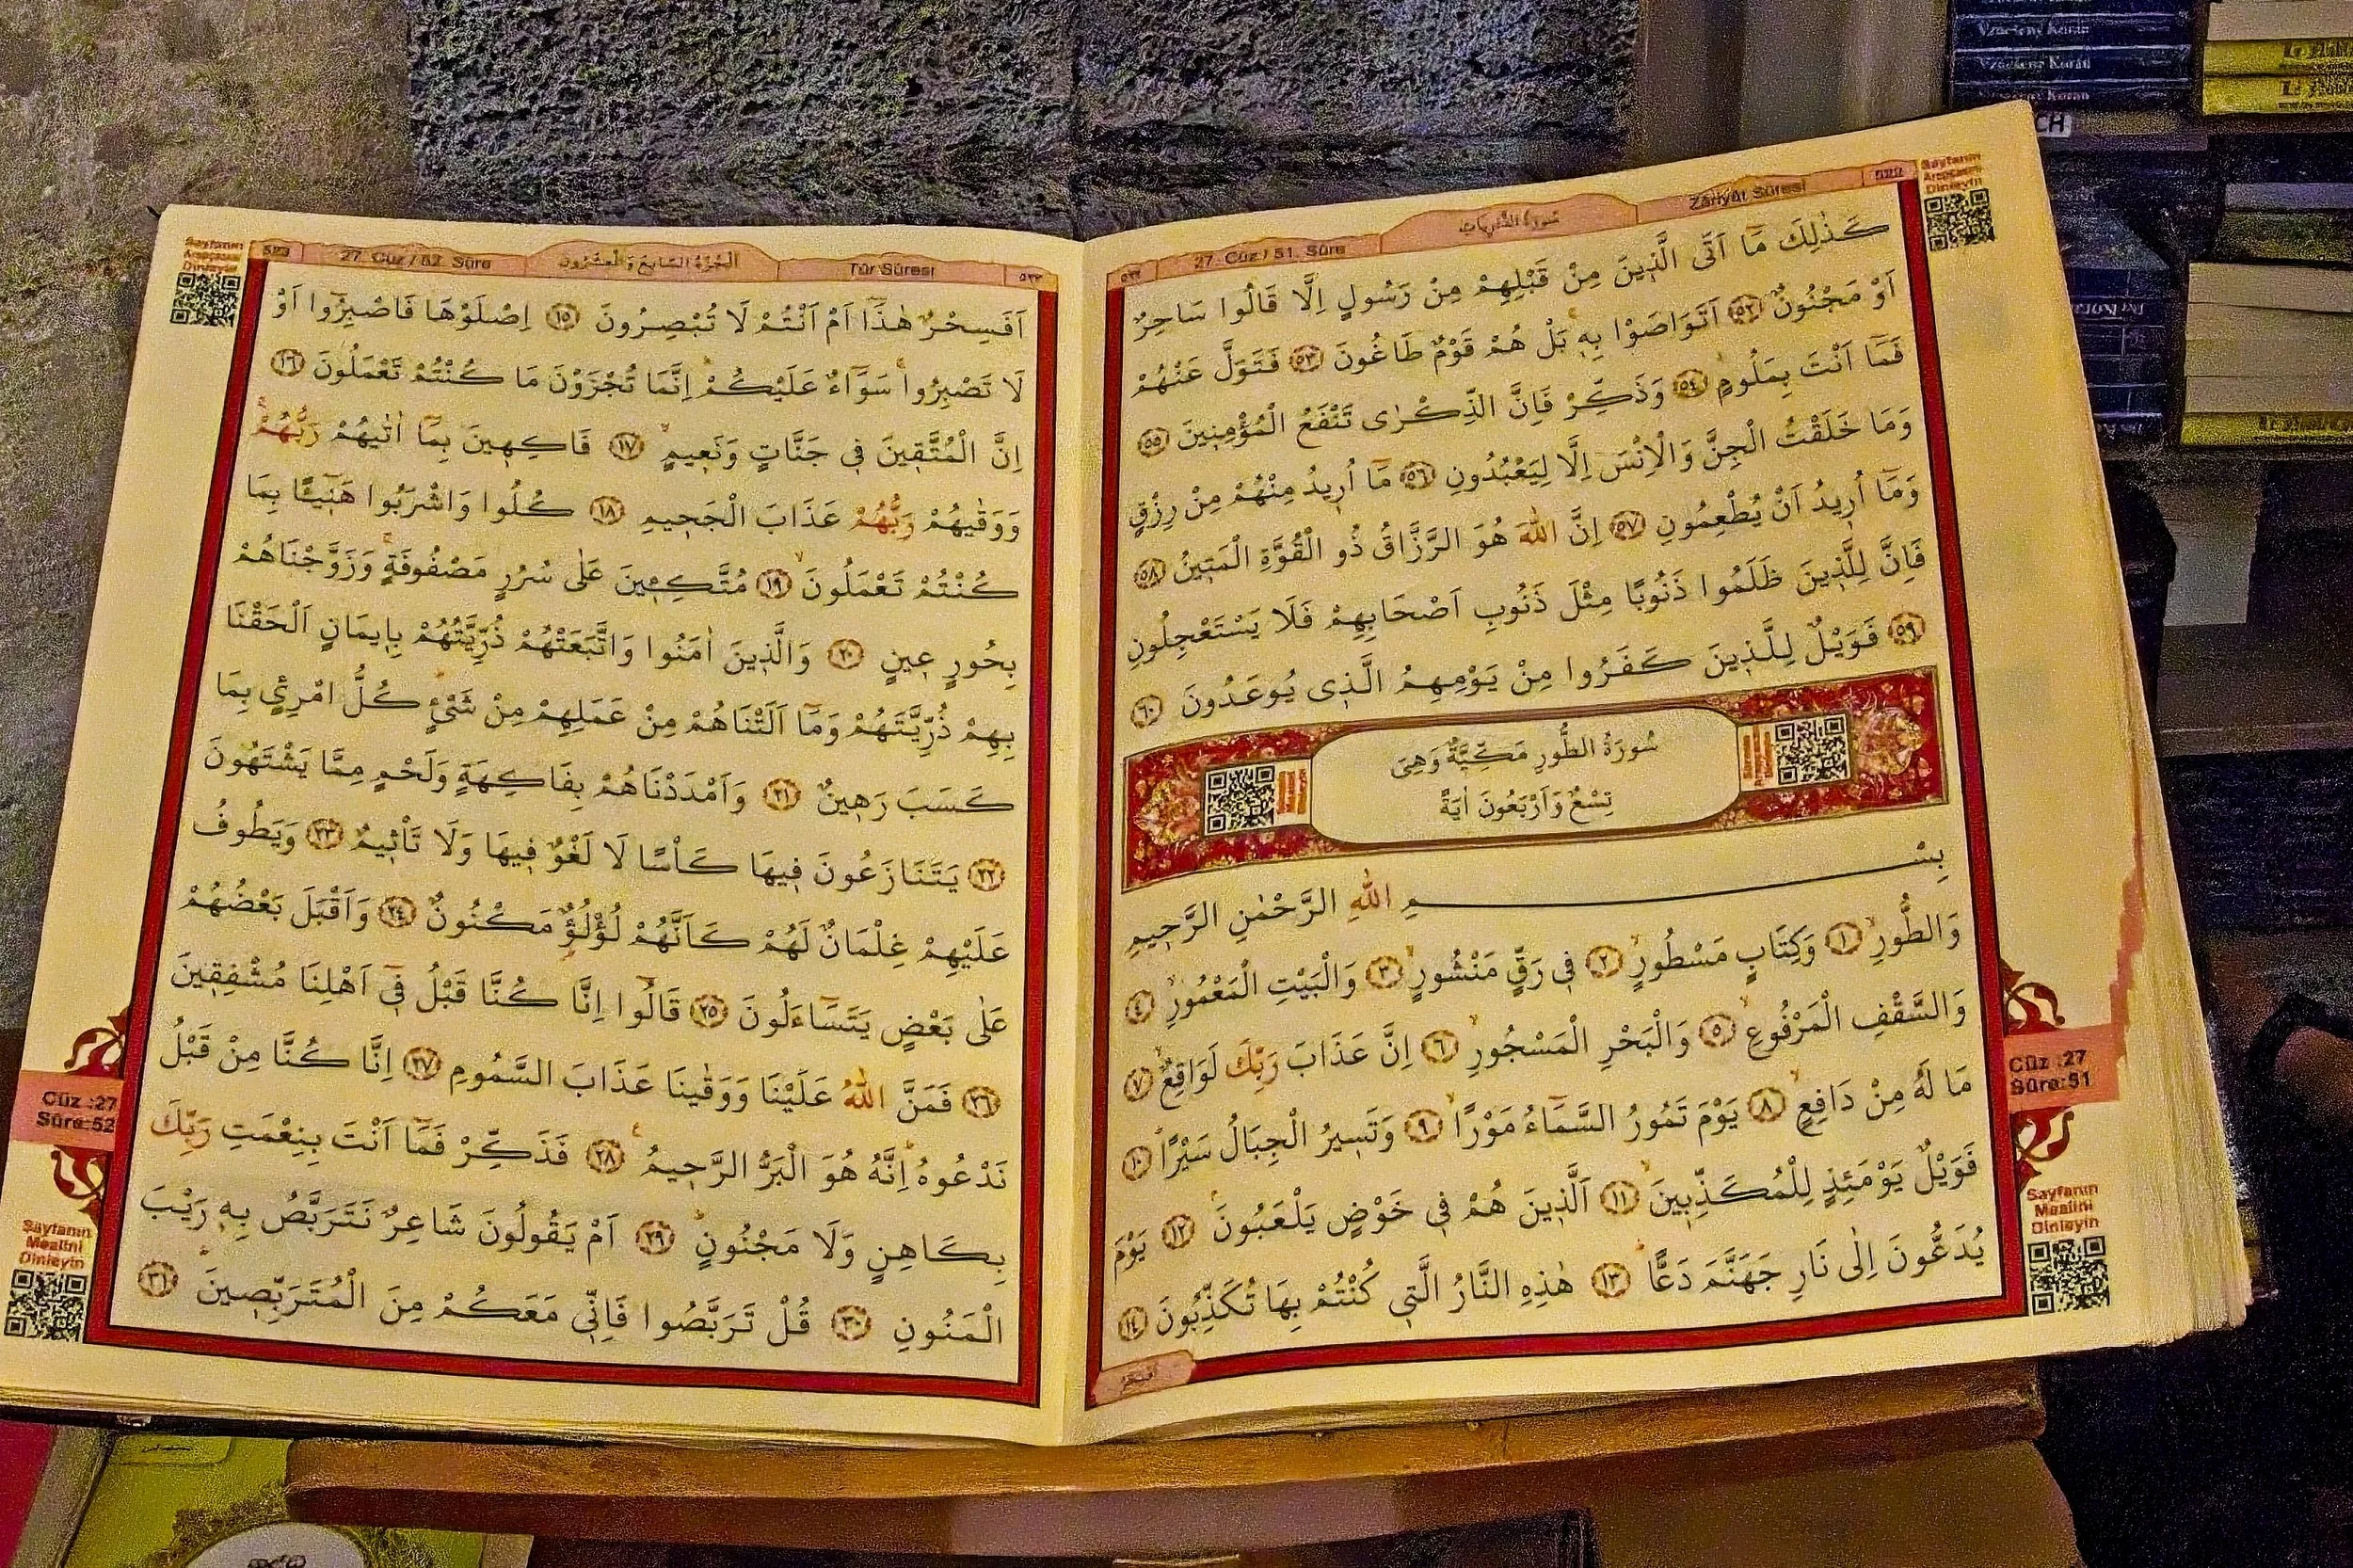 Sayfanın
Arapçasını
Dinleyin
٥٢٢
27. Cüz / 51. Sûre
سُورَةُ الذَّارِيَاتِ
Zâriyât Sûresi
522
كَذٰلِكَ مَٓا اَتَى الَّذ۪ينَ مِنْ قَبْلِهِمْ مِنْ رَسُولٍ اِلَّا قَالُوا سَاحِرٌ
اَوْ مَجْنُونٌ ﴿٥٢﴾ اَتَوَاصَوْا بِه۪ۚ بَلْ هُمْ قَوْمٌ طَاغُونَ ﴿٥٣﴾ فَتَوَلَّ عَنْهُمْ
فَمَٓا اَنْتَ بِمَلُومٍۘ ﴿٥٤﴾ وَذَكِّرْ فَاِنَّ الذِّكْرٰى تَنْفَعُ الْمُؤْمِن۪ينَ ﴿٥٥﴾
وَمَا خَلَقْتُ الْجِنَّ وَالْاِنْسَ اِلَّا لِيَعْبُدُونِ ﴿٥٦﴾ مَٓا اُر۪يدُ مِنْهُمْ مِنْ رِزْقٍ
وَمَٓا اُر۪يدُ اَنْ يُطْعِمُونِ ﴿٥٧﴾ اِنَّ اللّٰهَ هُوَ الرَّزَّاقُ ذُو الْقُوَّةِ الْمَت۪ينُ ﴿٥٨﴾
فَاِنَّ لِلَّذ۪ينَ ظَلَمُوا ذَنُوبًا مِثْلَ ذَنُوبِ اَصْحَابِهِمْ فَلَا يَسْتَعْجِلُونِ
﴿٥٩﴾ فَوَيْلٌ لِلَّذ۪ينَ كَفَرُوا مِنْ يَوْمِهِمُ الَّذ۪ى يُوعَدُونَ ﴿٦٠﴾
سُورَةُ الطُّورِ مَكِّيَّةٌ وَهِىَ
تِسْعٌ وَاَرْبَعُونَ اٰيَةً
بِسْــــــــــمِ اللّٰهِ الرَّحْمٰنِ الرَّح۪يمِ
وَالطُّورِۙ ﴿١﴾ وَكِتَابٍ مَسْطُورٍۙ ﴿٢﴾ ف۪ى رَقٍّ مَنْشُورٍۙ ﴿٣﴾ وَالْبَيْتِ الْمَعْمُورِۙ ﴿٤﴾
وَالسَّقْفِ الْمَرْفُوعِۙ ﴿٥﴾ وَالْبَحْرِ الْمَسْجُورِۙ ﴿٦﴾ اِنَّ عَذَابَ رَبِّكَ لَوَاقِعٌۙ ﴿٧﴾
مَا لَهُ مِنْ دَافِعٍۙ ﴿٨﴾ يَوْمَ تَمُورُ السَّمَٓاءُ مَوْرًاۙ ﴿٩﴾ وَتَس۪يرُ الْجِبَالُ سَيْرًاۜ ﴿١٠﴾
فَوَيْلٌ يَوْمَئِذٍ لِلْمُكَذِّب۪ينَۙ ﴿١١﴾ اَلَّذ۪ينَ هُمْ ف۪ى خَوْضٍ يَلْعَبُونَۘ ﴿١٢﴾ يَوْمَ
يُدَعُّونَ اِلٰى نَارِ جَهَنَّمَ دَعًّاۜ ﴿١٣﴾ هٰذِهِ النَّارُ الَّت۪ى كُنْتُمْ بِهَا تُكَذِّبُونَ ﴿١٤﴾
اَفَسِحْرٌ
Cüz :27
Sûre:51
Sayfanın
Mealini
Dinleyin
Sayfanın
Arapçasını
Dinleyin
523
27. Cüz / 52. Sûre
اَلْجُزْءُ السَّابِعُ وَالْعِشْرُونَ
Tûr Sûresi
٥٢٣
اَفَسِحْرٌ هٰذَٓا اَمْ اَنْتُمْ لَا تُبْصِرُونَ ﴿١٥﴾ اِصْلَوْهَا فَاصْبِرُٓوا اَوْ
لَا تَصْبِرُواۚ سَوَٓاءٌ عَلَيْكُمْۜ اِنَّمَا تُجْزَوْنَ مَا كُنْتُمْ تَعْمَلُونَ ﴿١٦﴾
اِنَّ الْمُتَّق۪ينَ ف۪ى جَنَّاتٍ وَنَع۪يمٍۙ ﴿١٧﴾ فَاكِه۪ينَ بِمَٓا اٰتٰيهُمْ رَبُّهُمْۚ
وَوَقٰيهُمْ رَبُّهُمْ عَذَابَ الْجَح۪يمِ ﴿١٨﴾ كُلُوا وَاشْرَبُوا هَن۪ٓيـًٔا بِمَا
كُنْتُمْ تَعْمَلُونَۙ ﴿١٩﴾ مُتَّكِـ۪ٔينَ عَلٰى سُرُرٍ مَصْفُوفَةٍۚ وَزَوَّجْنَاهُمْ
بِحُورٍ ع۪ينٍ ﴿٢٠﴾ وَالَّذ۪ينَ اٰمَنُوا وَاتَّبَعَتْهُمْ ذُرِّيَّتُهُمْ بِا۪يمَانٍ اَلْحَقْنَا
بِهِمْ ذُرِّيَّتَهُمْ وَمَٓا اَلَتْنَاهُمْ مِنْ عَمَلِهِمْ مِنْ شَىْءٍۜ كُلُّ امْرِئٍ بِمَا
كَسَبَ رَه۪ينٌ ﴿٢١﴾ وَاَمْدَدْنَاهُمْ بِفَاكِهَةٍ وَلَحْمٍ مِمَّا يَشْتَهُونَ
﴿٢٢﴾ يَتَنَازَعُونَ ف۪يهَا كَاْسًا لَا لَغْوٌ ف۪يهَا وَلَا تَاْث۪يمٌ ﴿٢٣﴾ وَيَطُوفُ
عَلَيْهِمْ غِلْمَانٌ لَهُمْ كَاَنَّهُمْ لُؤْلُؤٌ مَكْنُونٌ ﴿٢٤﴾ وَاَقْبَلَ بَعْضُهُمْ
عَلٰى بَعْضٍ يَتَسَٓاءَلُونَ ﴿٢٥﴾ قَالُٓوا اِنَّا كُنَّا قَبْلُ ف۪ٓى اَهْلِنَا مُشْفِق۪ينَ
﴿٢٦﴾ فَمَنَّ اللّٰهُ عَلَيْنَا وَوَقٰينَا عَذَابَ السَّمُومِ ﴿٢٧﴾ اِنَّا كُنَّا مِنْ قَبْلُ
نَدْعُوهُۜ اِنَّهُ هُوَ الْبَرُّ الرَّح۪يمُ۟ ﴿٢٨﴾ فَذَكِّرْ فَمَٓا اَنْتَ بِنِعْمَتِ رَبِّكَ
بِكَاهِنٍ وَلَا مَجْنُونٍۜ ﴿٢٩﴾ اَمْ يَقُولُونَ شَاعِرٌ نَتَرَبَّصُ بِه۪ رَيْبَ
الْمَنُونِ ﴿٣٠﴾ قُلْ تَرَبَّصُوا فَاِنّ۪ى مَعَكُمْ مِنَ الْمُتَرَبِّص۪ينَۜ ﴿٣١﴾
Cüz :27
Sûre:52
Sayfanın
Mealini
Dinleyin